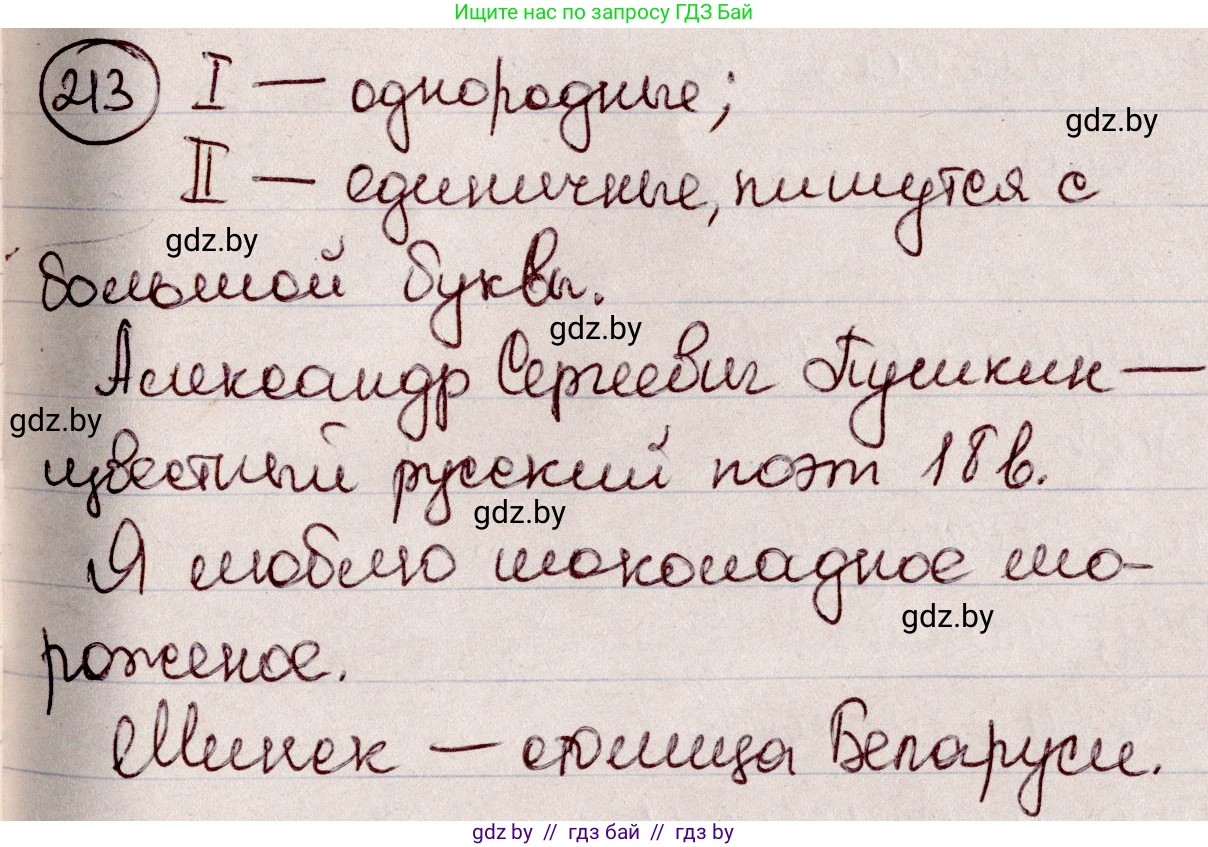 Ищите нас по запросу ГДЗ Бай
213 I — однородные;
gdz.by
II — единичные, пишутся с
gdz.by
большой буквы.
gdz.by
Александр Сергеевич Пушкин —
gdz.by
известный русский поэт 18 в.
gdz.by
Я люблю шоколадное мо-
gdz.by
роженое.
Минск — столица Беларуси.
gdz.by // гдз бай // гдз by